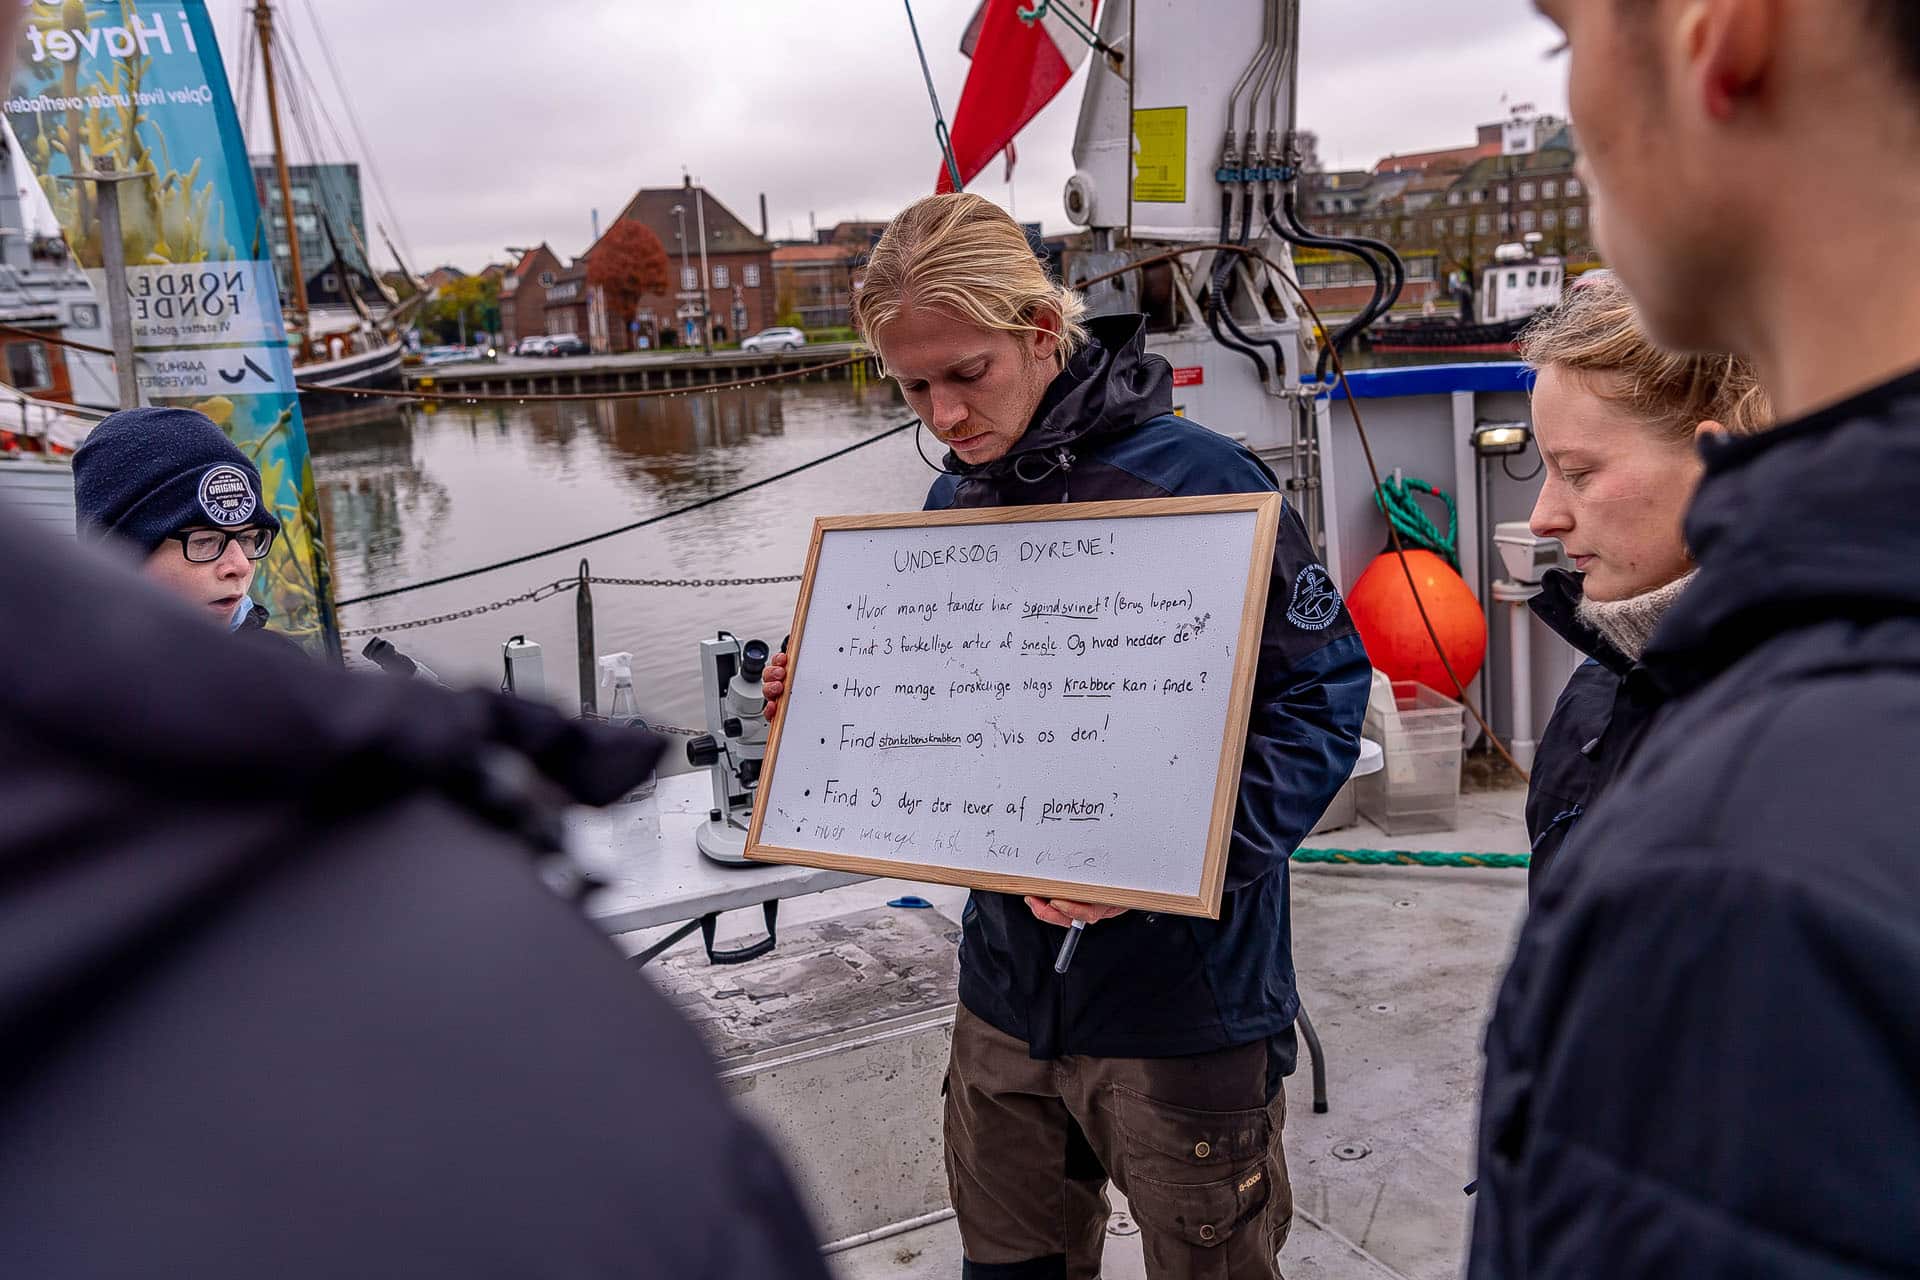 i Havet
Oplev livet under overfladen
NORDEA
FONDEN
Vi støtter gode liv
AARHUS
UNIVERSITET
ORIGINAL
2006
CITY SKATE
UNDERSØG DYRENE!
• Hvor mange tænder har søpindsvinet? (Brug luppen)
• Find 3 forskellige arter af snegle. Og hvad hedder de?
• Hvor mange forskellige slags krabber kan i finde?
• Find stankelbenskrabben og vis os den!
• Find 3 dyr der lever af plankton?
• Hvor mange fisk kan